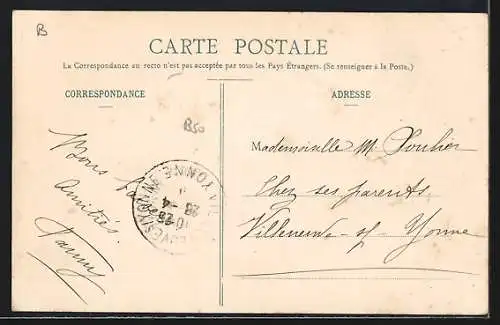 B
CARTE POSTALE
La Correspondance au recto n'est pas acceptée par tous les Pays Étrangers. (Se renseigner à la Poste.)
CORRESPONDANCE
ADRESSE
B50
Bons
Amitiés
Fanny
YONNE
Mademoiselle M.
Chez ses parents
Villeneuve-s/-Yonne